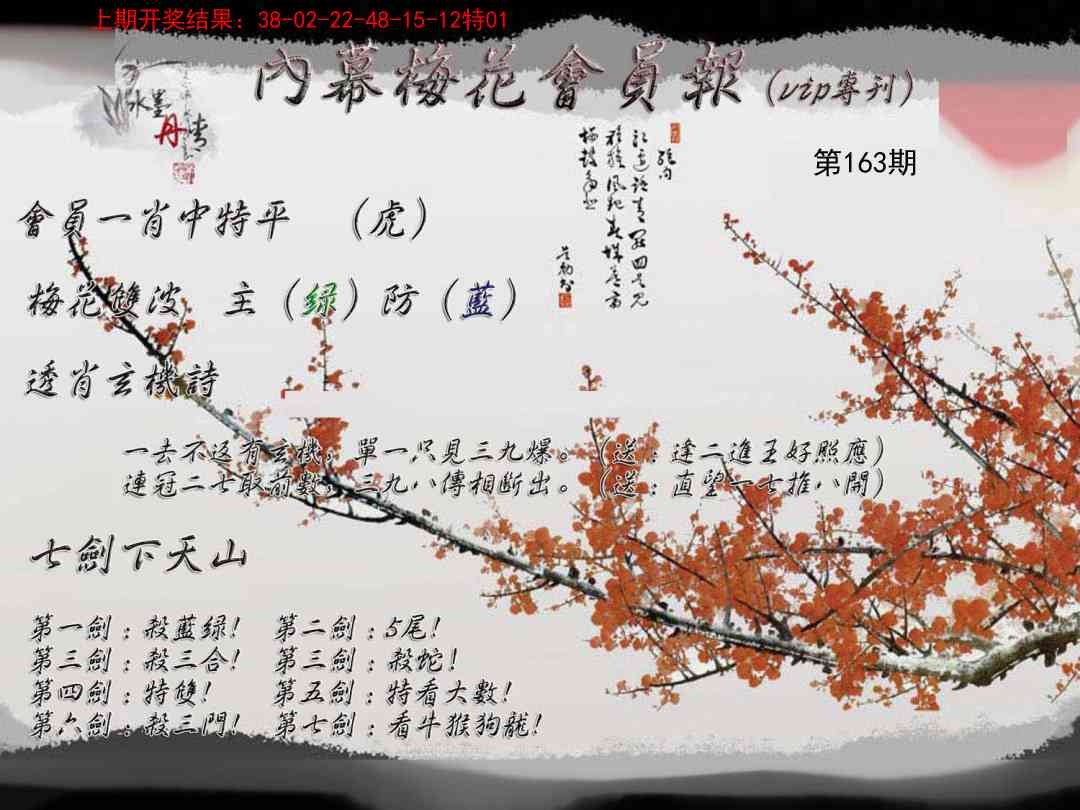 上期开奖结果：38-02-22-48-15-12特01
內幕梅花會員報(vip專刊)
水墨
丹青
第163期
會員一肖中特平 （虎）
梅花雙波 主（绿）防（藍）
透肖玄機詩
一去不返有玄機，單一只見三九爆。（送：逢二進五好照應）
連冠二七取前數，三九八傳相斷出。（送：直望一七推八開）
七劍下天山
第一劍：殺藍绿！ 第二劍：5尾！
第三劍：殺三合！ 第三劍：殺蛇！
第四劍：特雙！ 第五劍：特看大數！
第六劍：殺三門！ 第七劍：看牛猴狗龍！